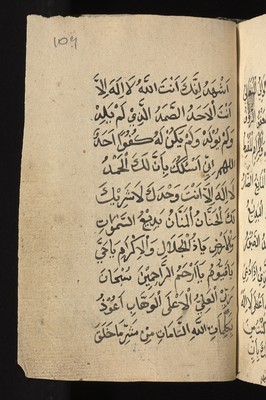 104
اَشْهَدُ اِنَّكَ اَنْتَ اللّٰهُ لَا اِلٰهَ اِلَّا
اَنْتَ الْاَحَدُ الصَّمَدُ الَّذِي لَمْ يَلِدْ
وَلَمْ يُولَدْ وَلَمْ يَكُنْ لَهُ كُفُوًا اَحَدٌ
اللهم اِنِّي اَسْئَلُكَ بِاَنَّ لَكَ الْحَمْدُ
لَا اِلٰهَ اِلَّا اَنْتَ وَحْدَكَ لَا شَرِيْكَ
لَكَ الْحَنَّانُ الْمَنَّانُ بَدِيْعُ السَّمٰوَاتِ
وَالْاَرْضِ يَا ذُو الْجَلَالِ وَالْاِكْرَامِ يَا حَيُّ
يَا قَيُّوْمُ يَا اَرْحَمَ الرَّاحِمِيْنَ سُبْحَانَ
رَبِّيَ الْعَلِيِّ الْاَعْلَى الْوَهَّابِ اَعُوْذُ
بِكَلِمَاتِ اللّٰهِ التَّامَّاتِ مِنْ شَرِّ مَا خَلَقَ